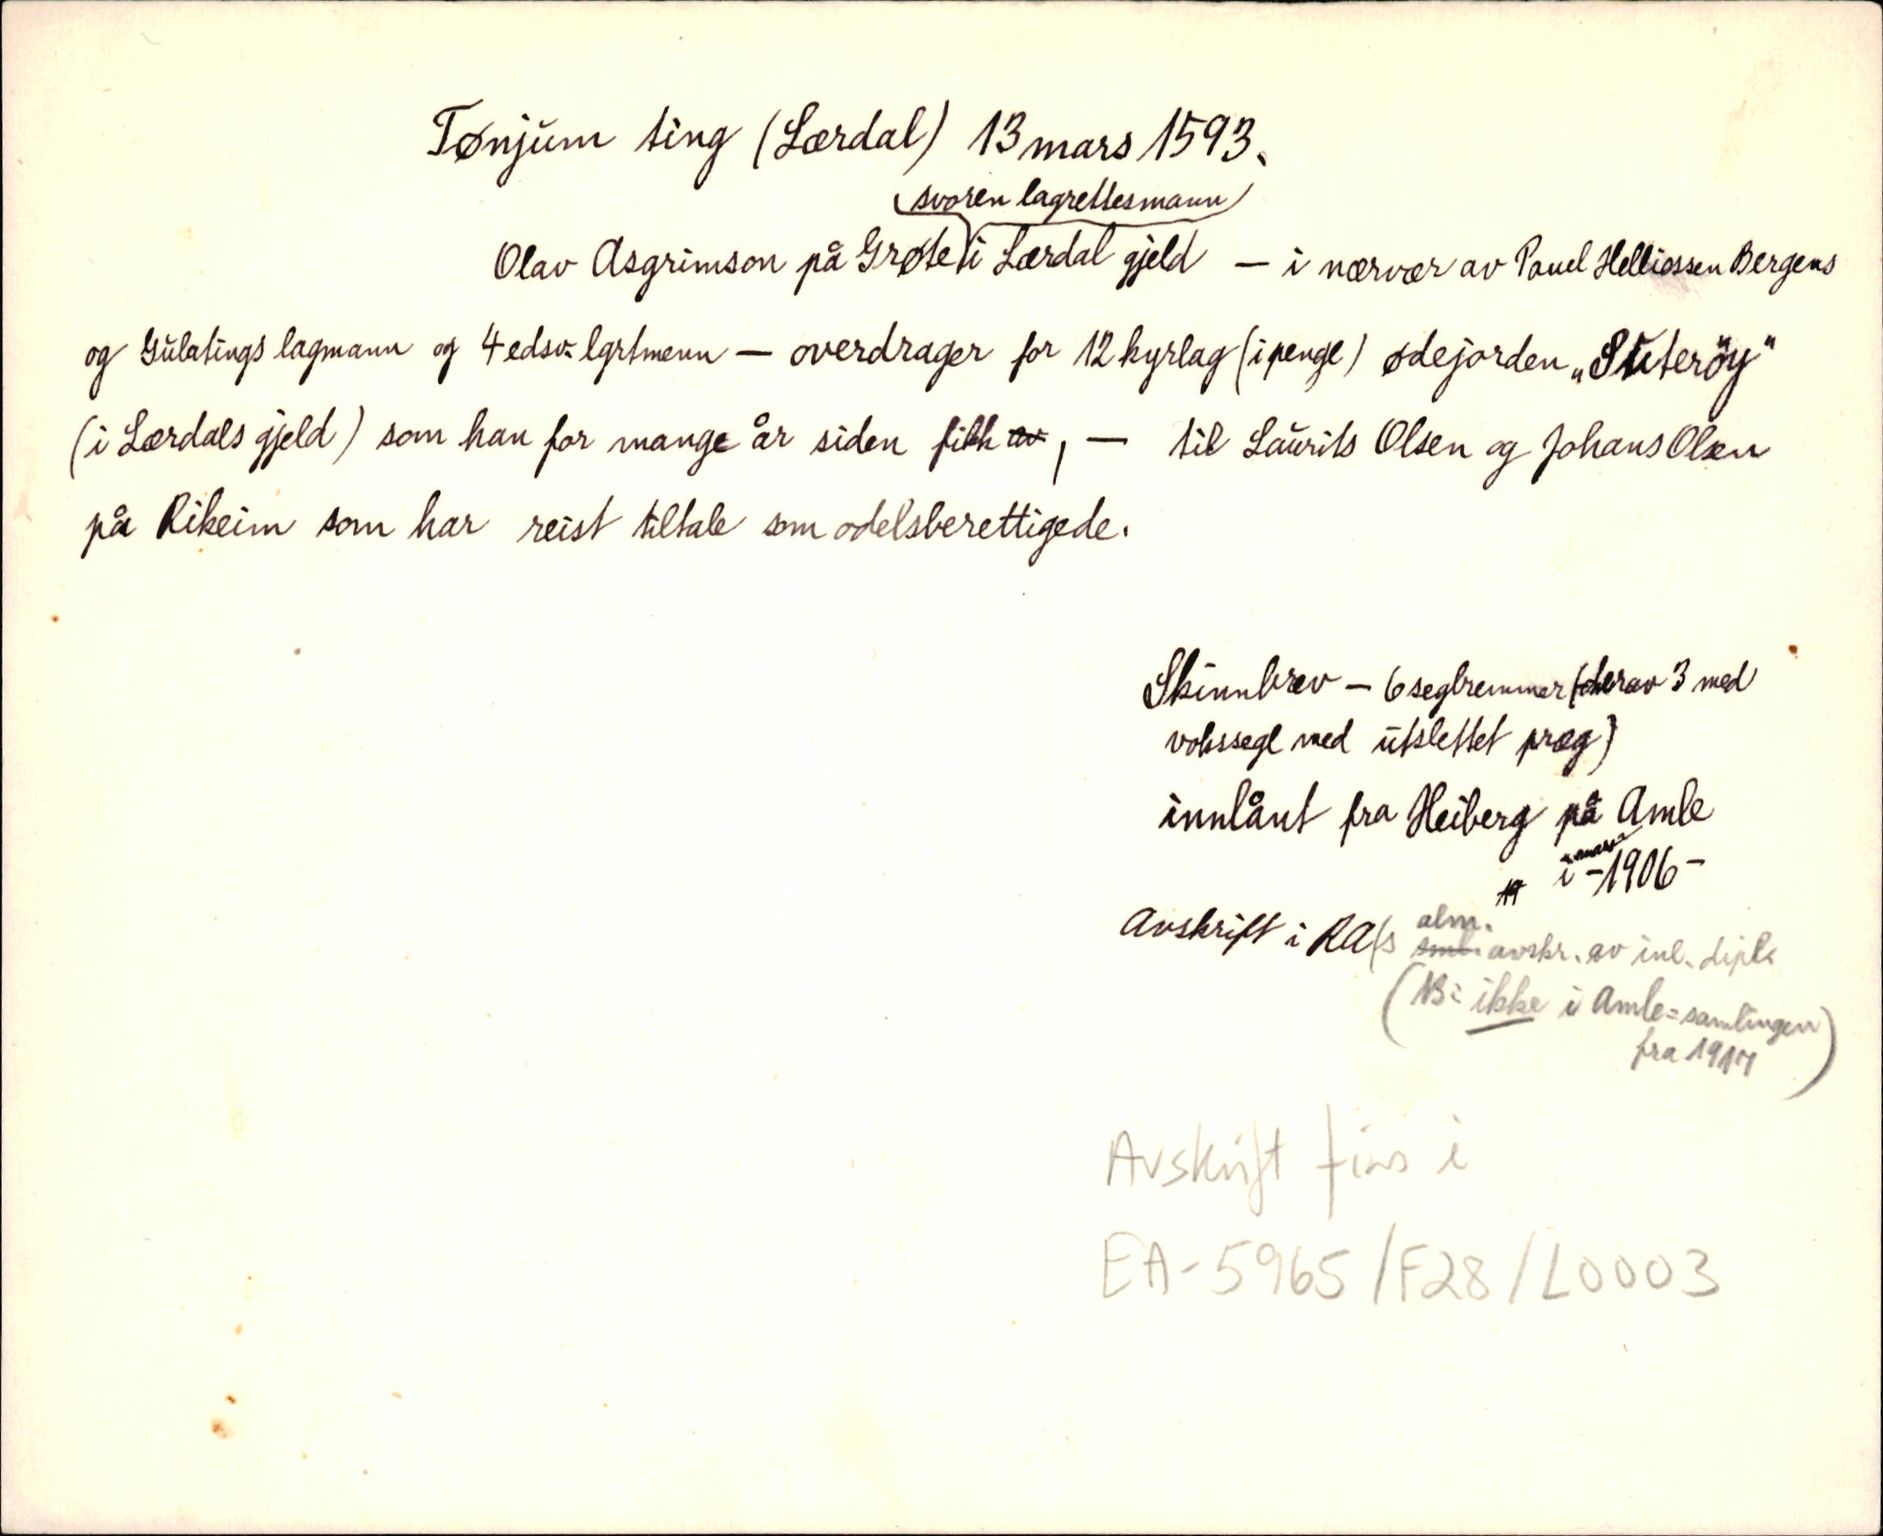 Tønjum ting (Lærdal) 13 mars 1593.
svoren lagrettesmann
Olav Asgrimson på Grøte i Lærdal gjeld — i nærvær av Pauel Helliessen Bergens
og Gulatings lagmann og 4 edsv. lgrtmenn — overdrager for 12 kyrlag (i penge) ødejorden „Suterøy"
(i Lærdals gjeld) som han for mange år siden fikk av, — til Laurits Olsen og Johans Olsen
på Rikeim som har reist tiltale som odelsberettigede.
Skinnbrev — 6 seglremmer (derav 3 med
vokssegl med utslettet præg)
innlånt fra Heiberg på Amle
i mars 1906 -
Avskrift i RA's alm. avskr. av inl. dipl.
(NB: ikke i Amle=samlingen
fra 1917)
Avskrift fins i
EA-5965/F28/L0003